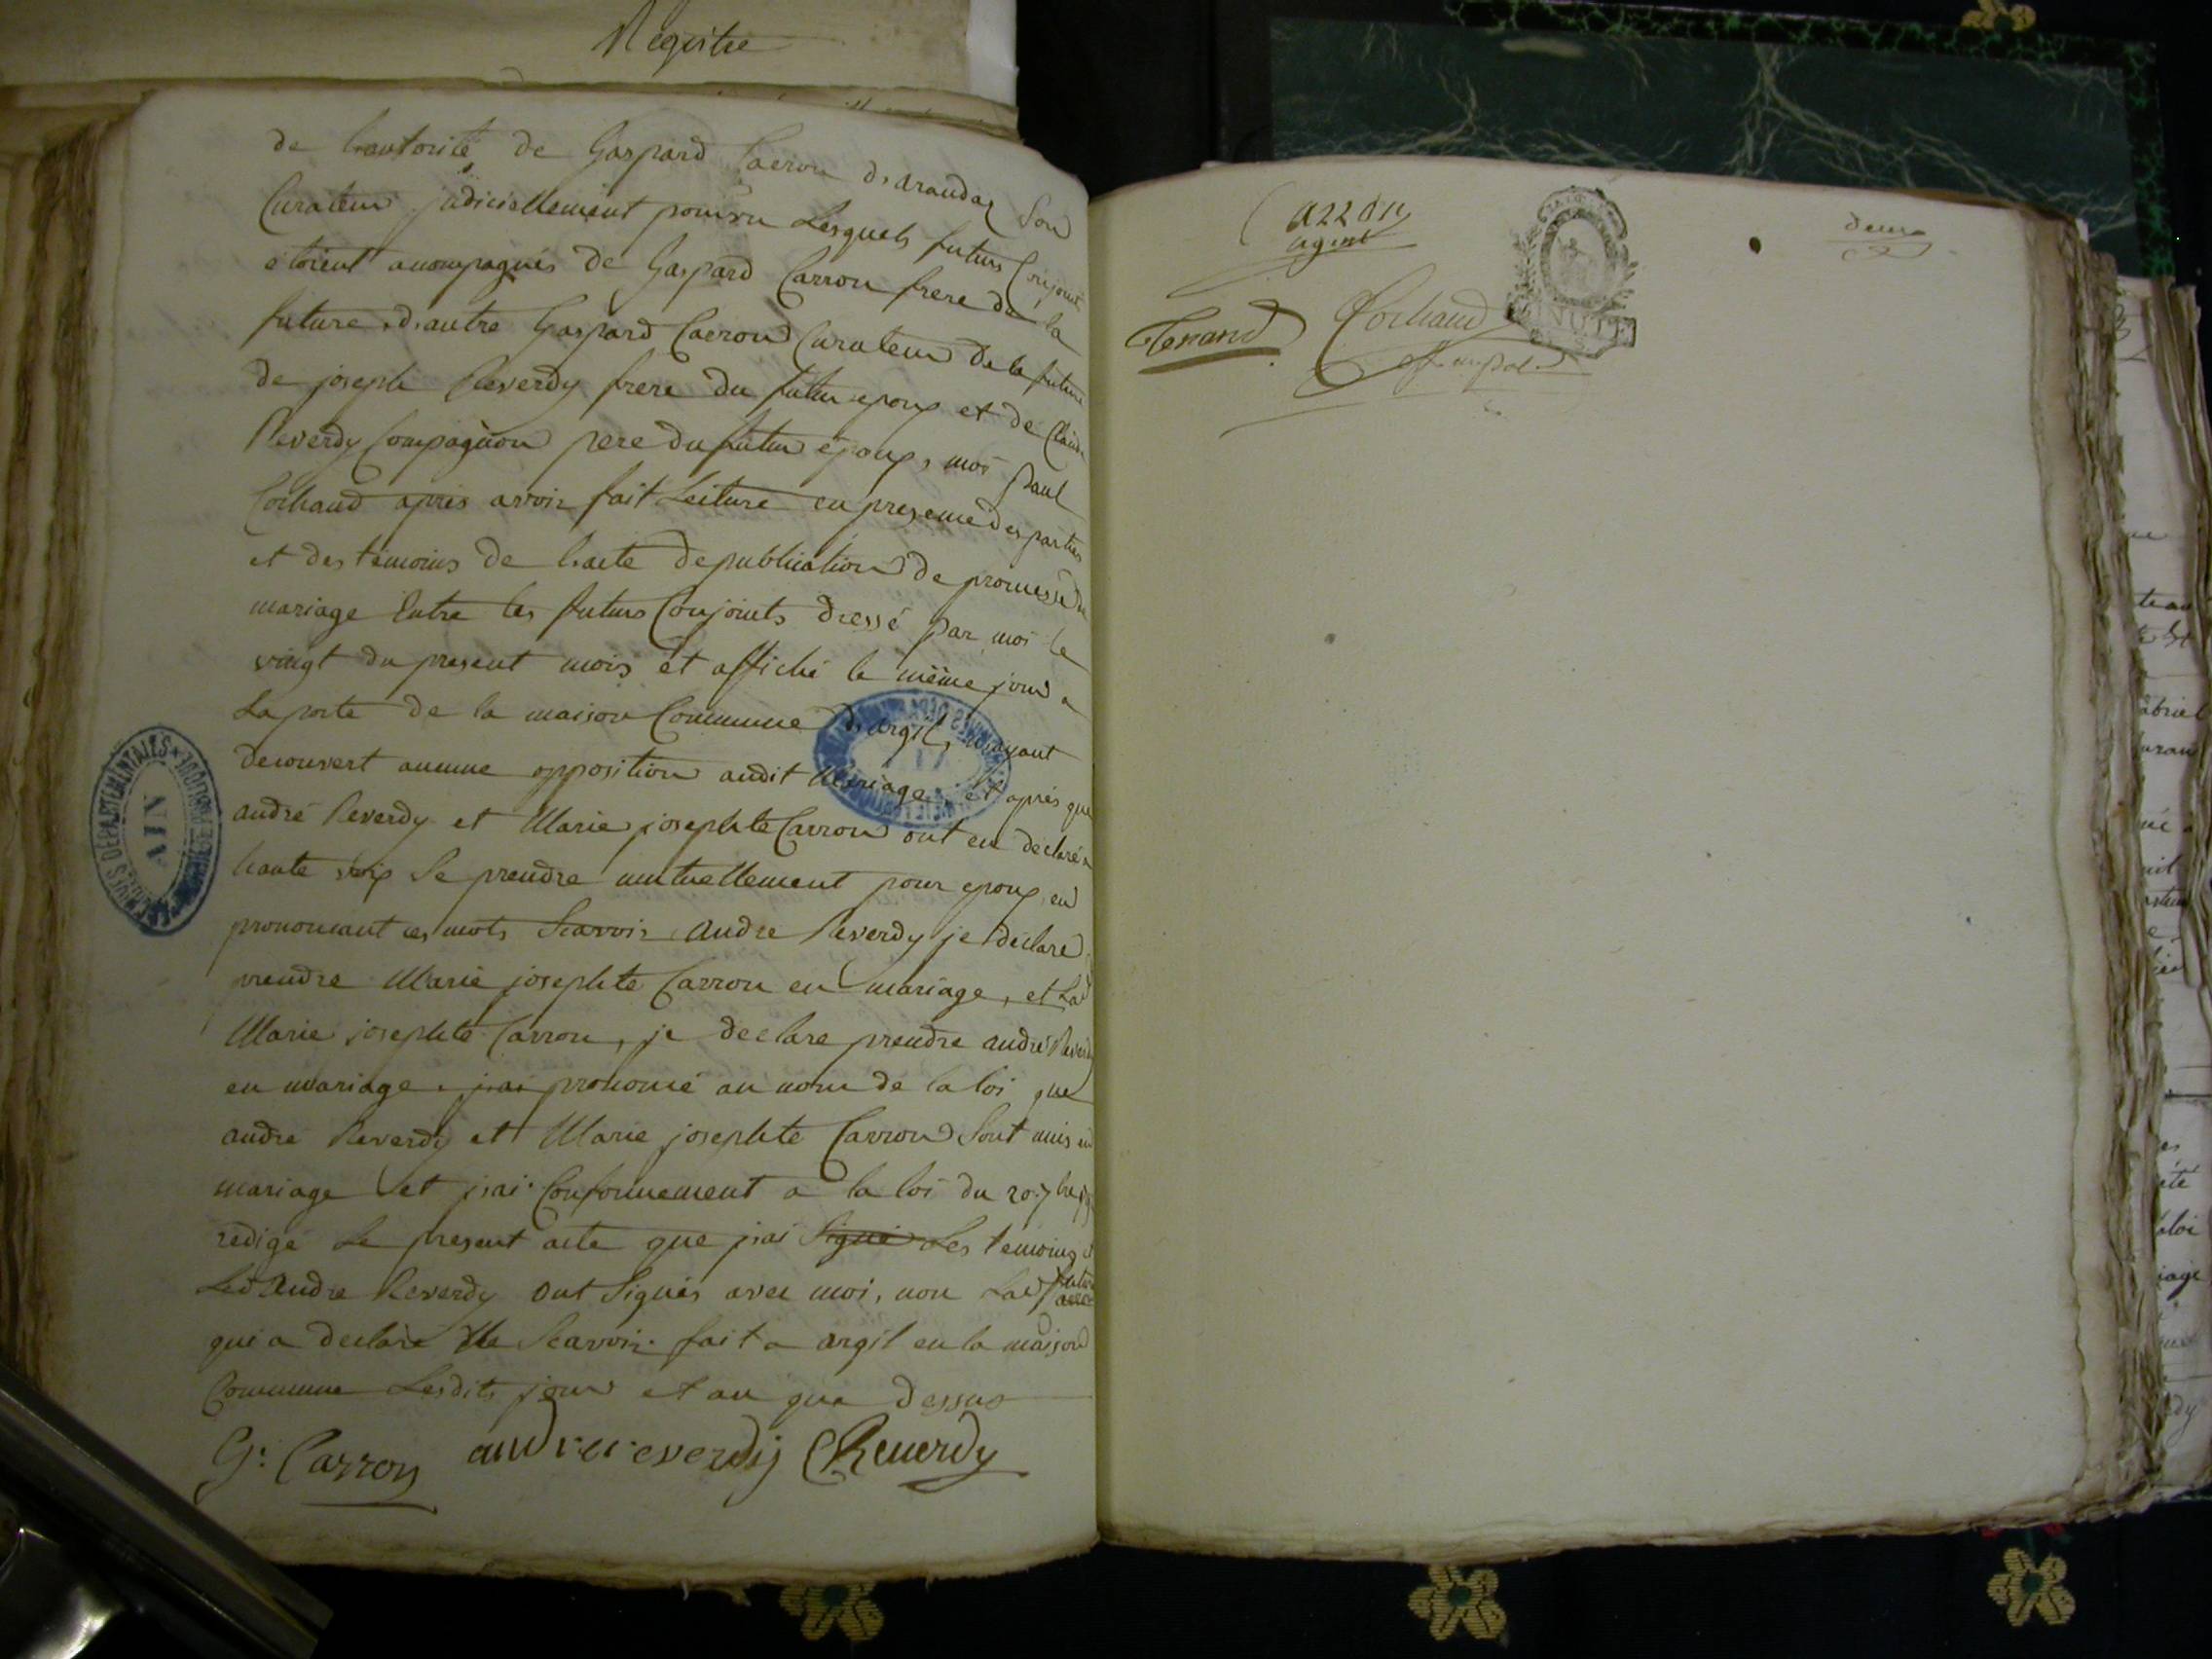 Registre
de l'autorité de Gaspard Carron d'arandas Son
Curateur judiciellement pourvu Lesquels futurs Conjoints
étoient acompagnés de Gaspard Carron frere de la
future, d'autre Gaspard Carron Curateur de la future
de joseph Reverdy frere du futur epoux et de Claude
Reverdy Compagnon pere du futur époux, moi Paul
Cochaud après avoir fait Lecture en presence des parties
et des témoins de l'acte de publication de promesse de
mariage Entre les futurs Conjoints dressé par moi le
vingt du present mois et affiché le même jour a
La porte de la maison Commune d'argil, n'ayant
decouvert aucune opposition audit Mariage, et après que
andré Reverdy et Marie josephte Carron ont eu declaré a
haute voix Se prendre mutuellement pour epoux, en
prononcant ces mots Scavoir andre Reverdy je declare
prendre Marie josephte Carron en mariage, et Lad
Marie josephte Carron, je declare prendre andré Reverdy
en mariage. j'ai prononcé au nom de la loi que
andré Reverdy et Marie josephte Carron Sont unis en
mariage et j'ai Conformement a la loi du 20 7bre
redigé Le present acte que j'ai Signé Les temoins et
Led andre Reverdy ont Signés avec moi, non Lad future
qui a declaré Ne Scavoir. fait a argil en la maison
Commune Lesdits jour et an que dessus
G: Carron andre reverdy C Reverdy
ARCHIVES DÉPARTEMENTALES
AIN
deux
azzon
agent
Tenand
Cochaud
MINUTE